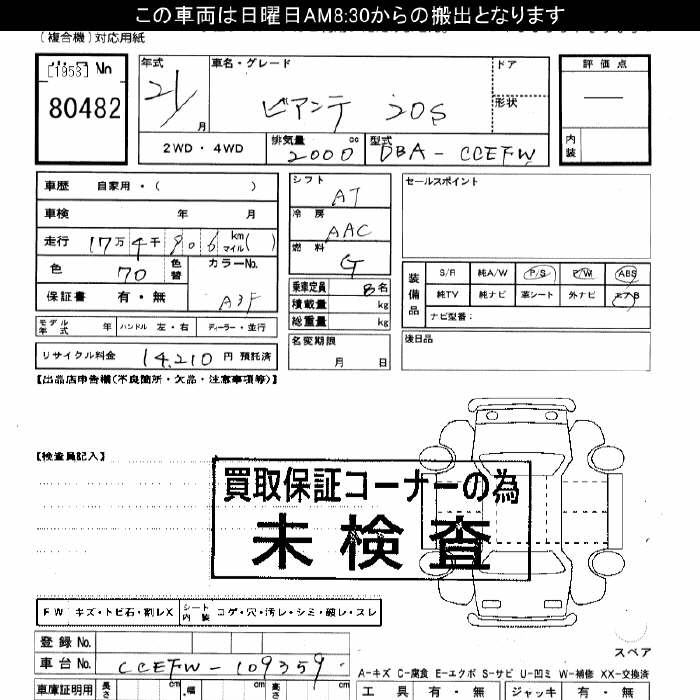 この車両は日曜日AM8:30からの搬出となります
(複合機)対応用紙
[1953] No
80482
年式 21 月
車名・グレード
ビアンテ 20S
ドア
形状
評価点
内装
2WD・4WD
排気量 2000 cc
型式 DBA-CCEFW
車歴 自家用・( )
車検 年 月
走行 17万4千906 km マイル( )
色 70 色替 カラーNo. A3F
保証書 有・無
モデル年式 年 ハンドル 左・右 ディーラー・並行
リサイクル料金 14,210 円 預託済
シフト AT
冷房 AAC
燃料 G
乗車定員 8名
積載量 kg
総重量 kg
名変期限
月 日
セールスポイント
装備品
S/R 純A/W P/S P/W ABS
純TV 純ナビ 革シート 外ナビ エアB
ナビ型番:
後日品
【出品店申告欄(不良箇所・欠品・注意事項等)】
【検査員記入】
買取保証コーナーの為
未検査
FW キズ・トビ石・割レX シート内装 コゲ・穴・汚レ・シミ・破レ・スレ
登録No.
車台No. CCEFW-109359
車庫証明用 長さ cm 幅 cm 高さ cm
スペア
A-キズ C-腐食 E-エクボ S-サビ U-凹ミ W-補修 XX-交換済
工具 有・無 ジャッキ 有・無